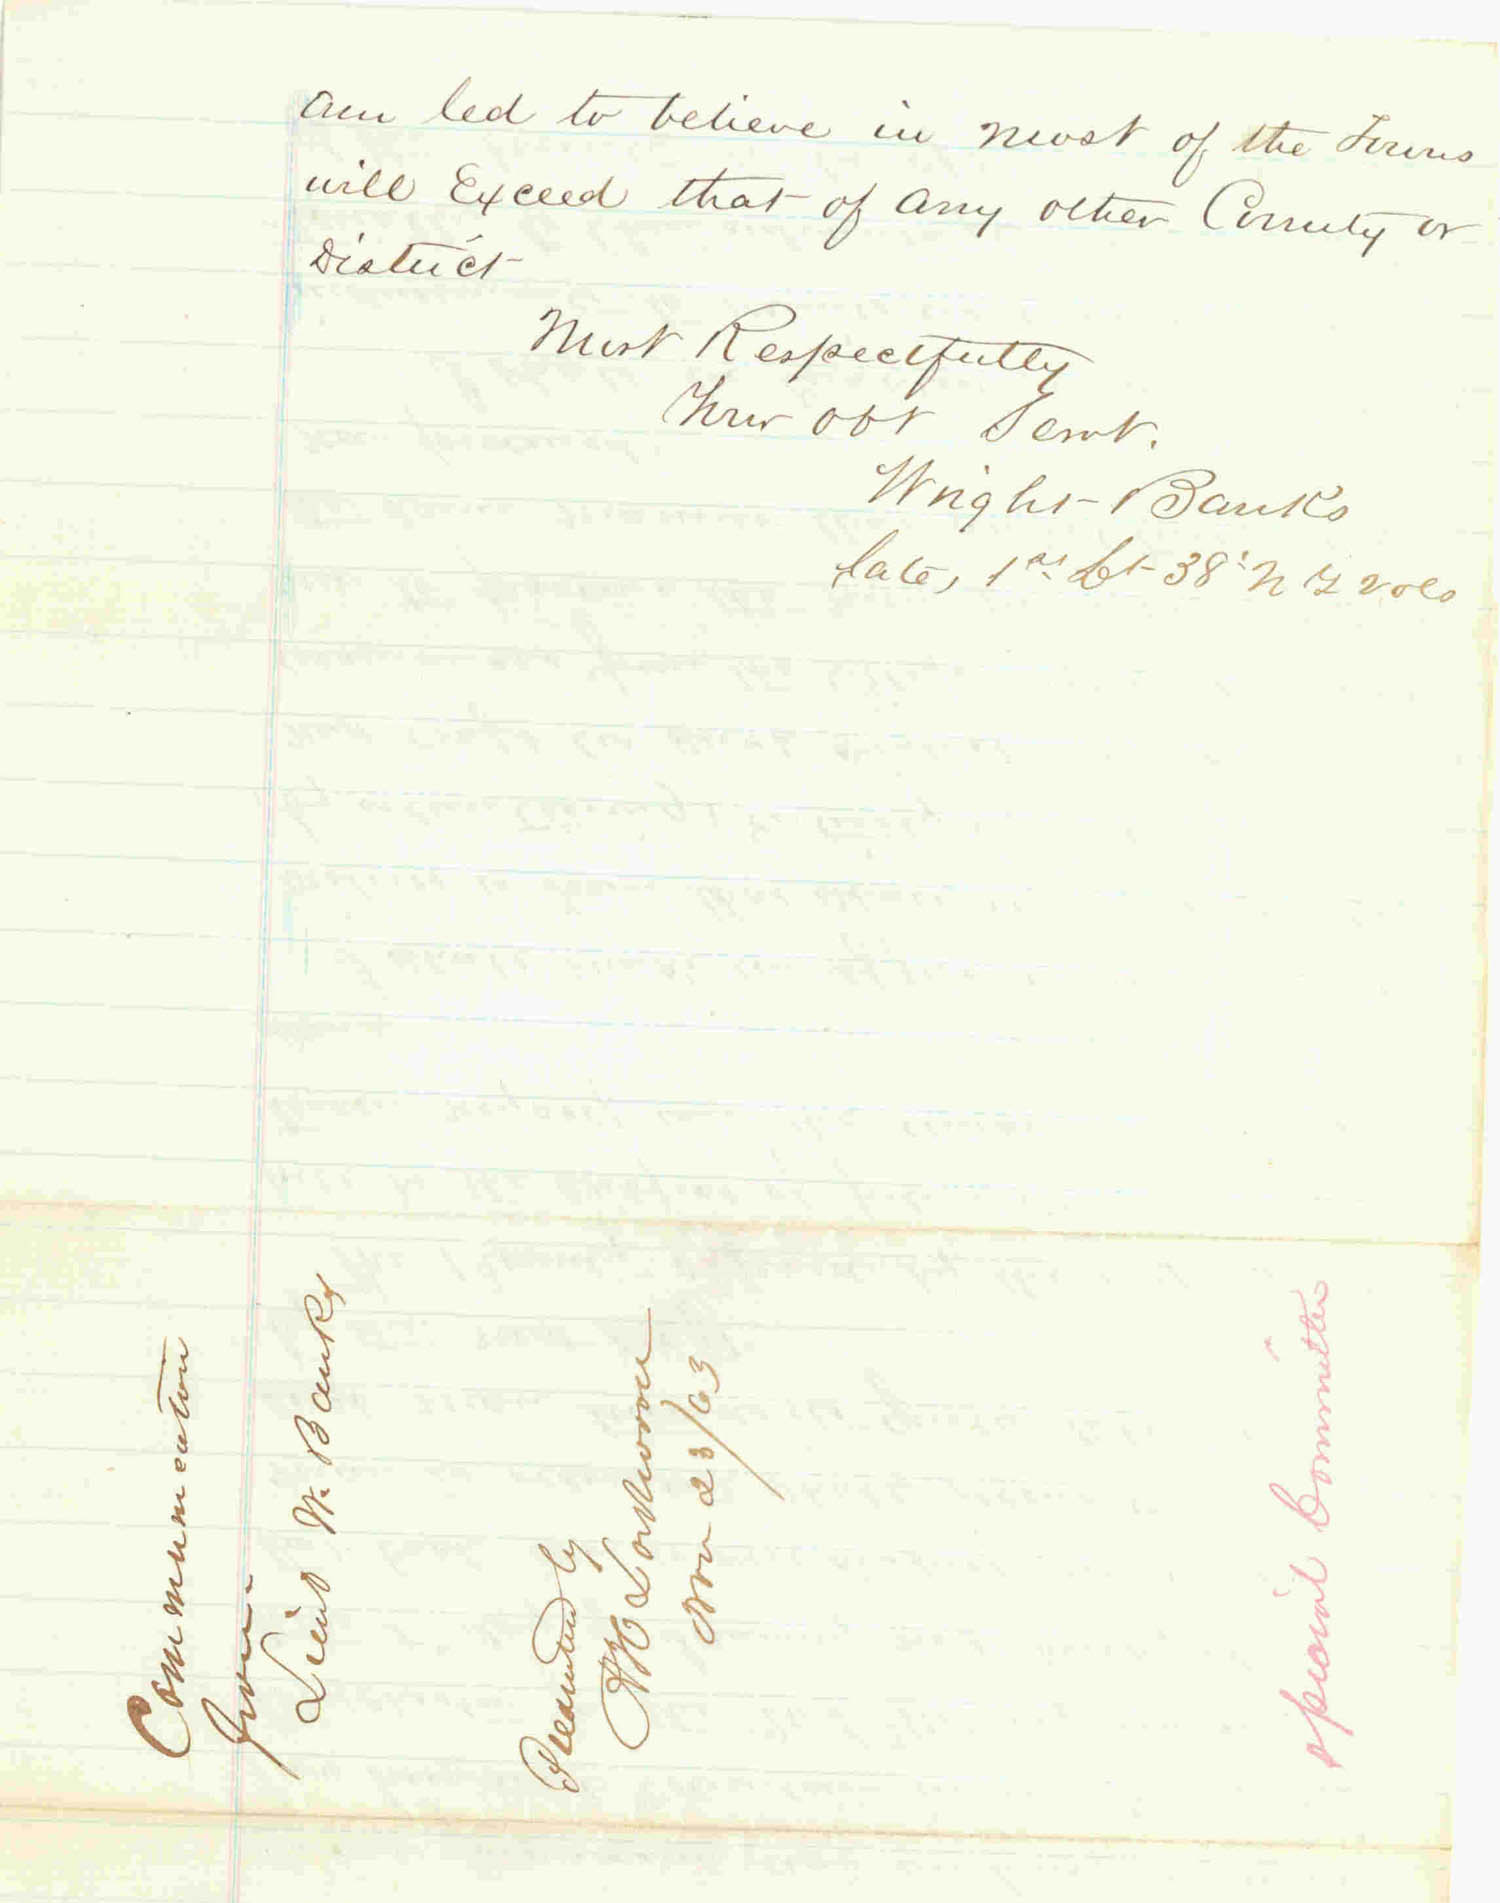 am led to believe in most of the Towns
will Exceed that of any other County or
District
Most Respectfully
Your obt Servt.
Wright Banks
late, 1st Lt 38' N Y Vols
Communication
from
Lieut W. Banks
Presented by
Lockwood
Nov 23/63
Special Committee